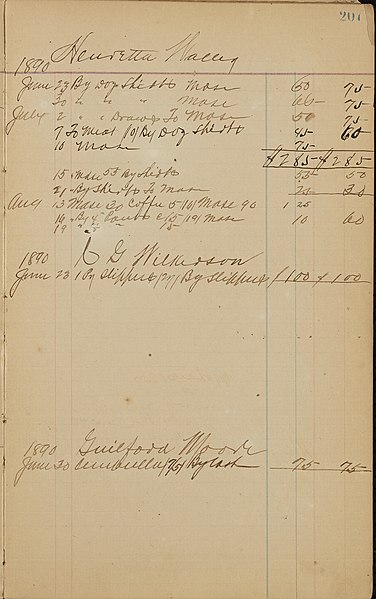 201
1890 Henrietta
June 23 By Doz Shirts Mose 60 75
30 " " " Mose 66 75
July 2 " " Drawers To Mose 50 75
7 To Meat /01 By Doz Shirts 45 60
10 Mose 75
$2.85 $2.85
15 Mose 55 By Shirts 55 50
21 By Shirts To Mose 75 30
Aug 13 Mose 30 Coffee 5 Mose 90 1 25
16 By 15 Mose 10 60
19
1890 G Wilkerson
June 23 By Slippers By Slippers 1 00 1 00
1890 Guilford Moore
June 30 Umbrella /75/ By Cash 75 75